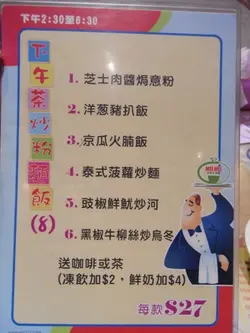 下午2:30至6:30
下午茶炒粉麵飯(8)
1. 芝士肉醬焗意粉
2. 洋葱豬扒飯
3. 京瓜火腩飯
4. 泰式菠蘿炒麵
5. 豉椒鮮魷炒河
6. 黑椒牛柳絲炒烏冬
送咖啡或茶
(凍飲加$2，鮮奶加$4)
每款 $27